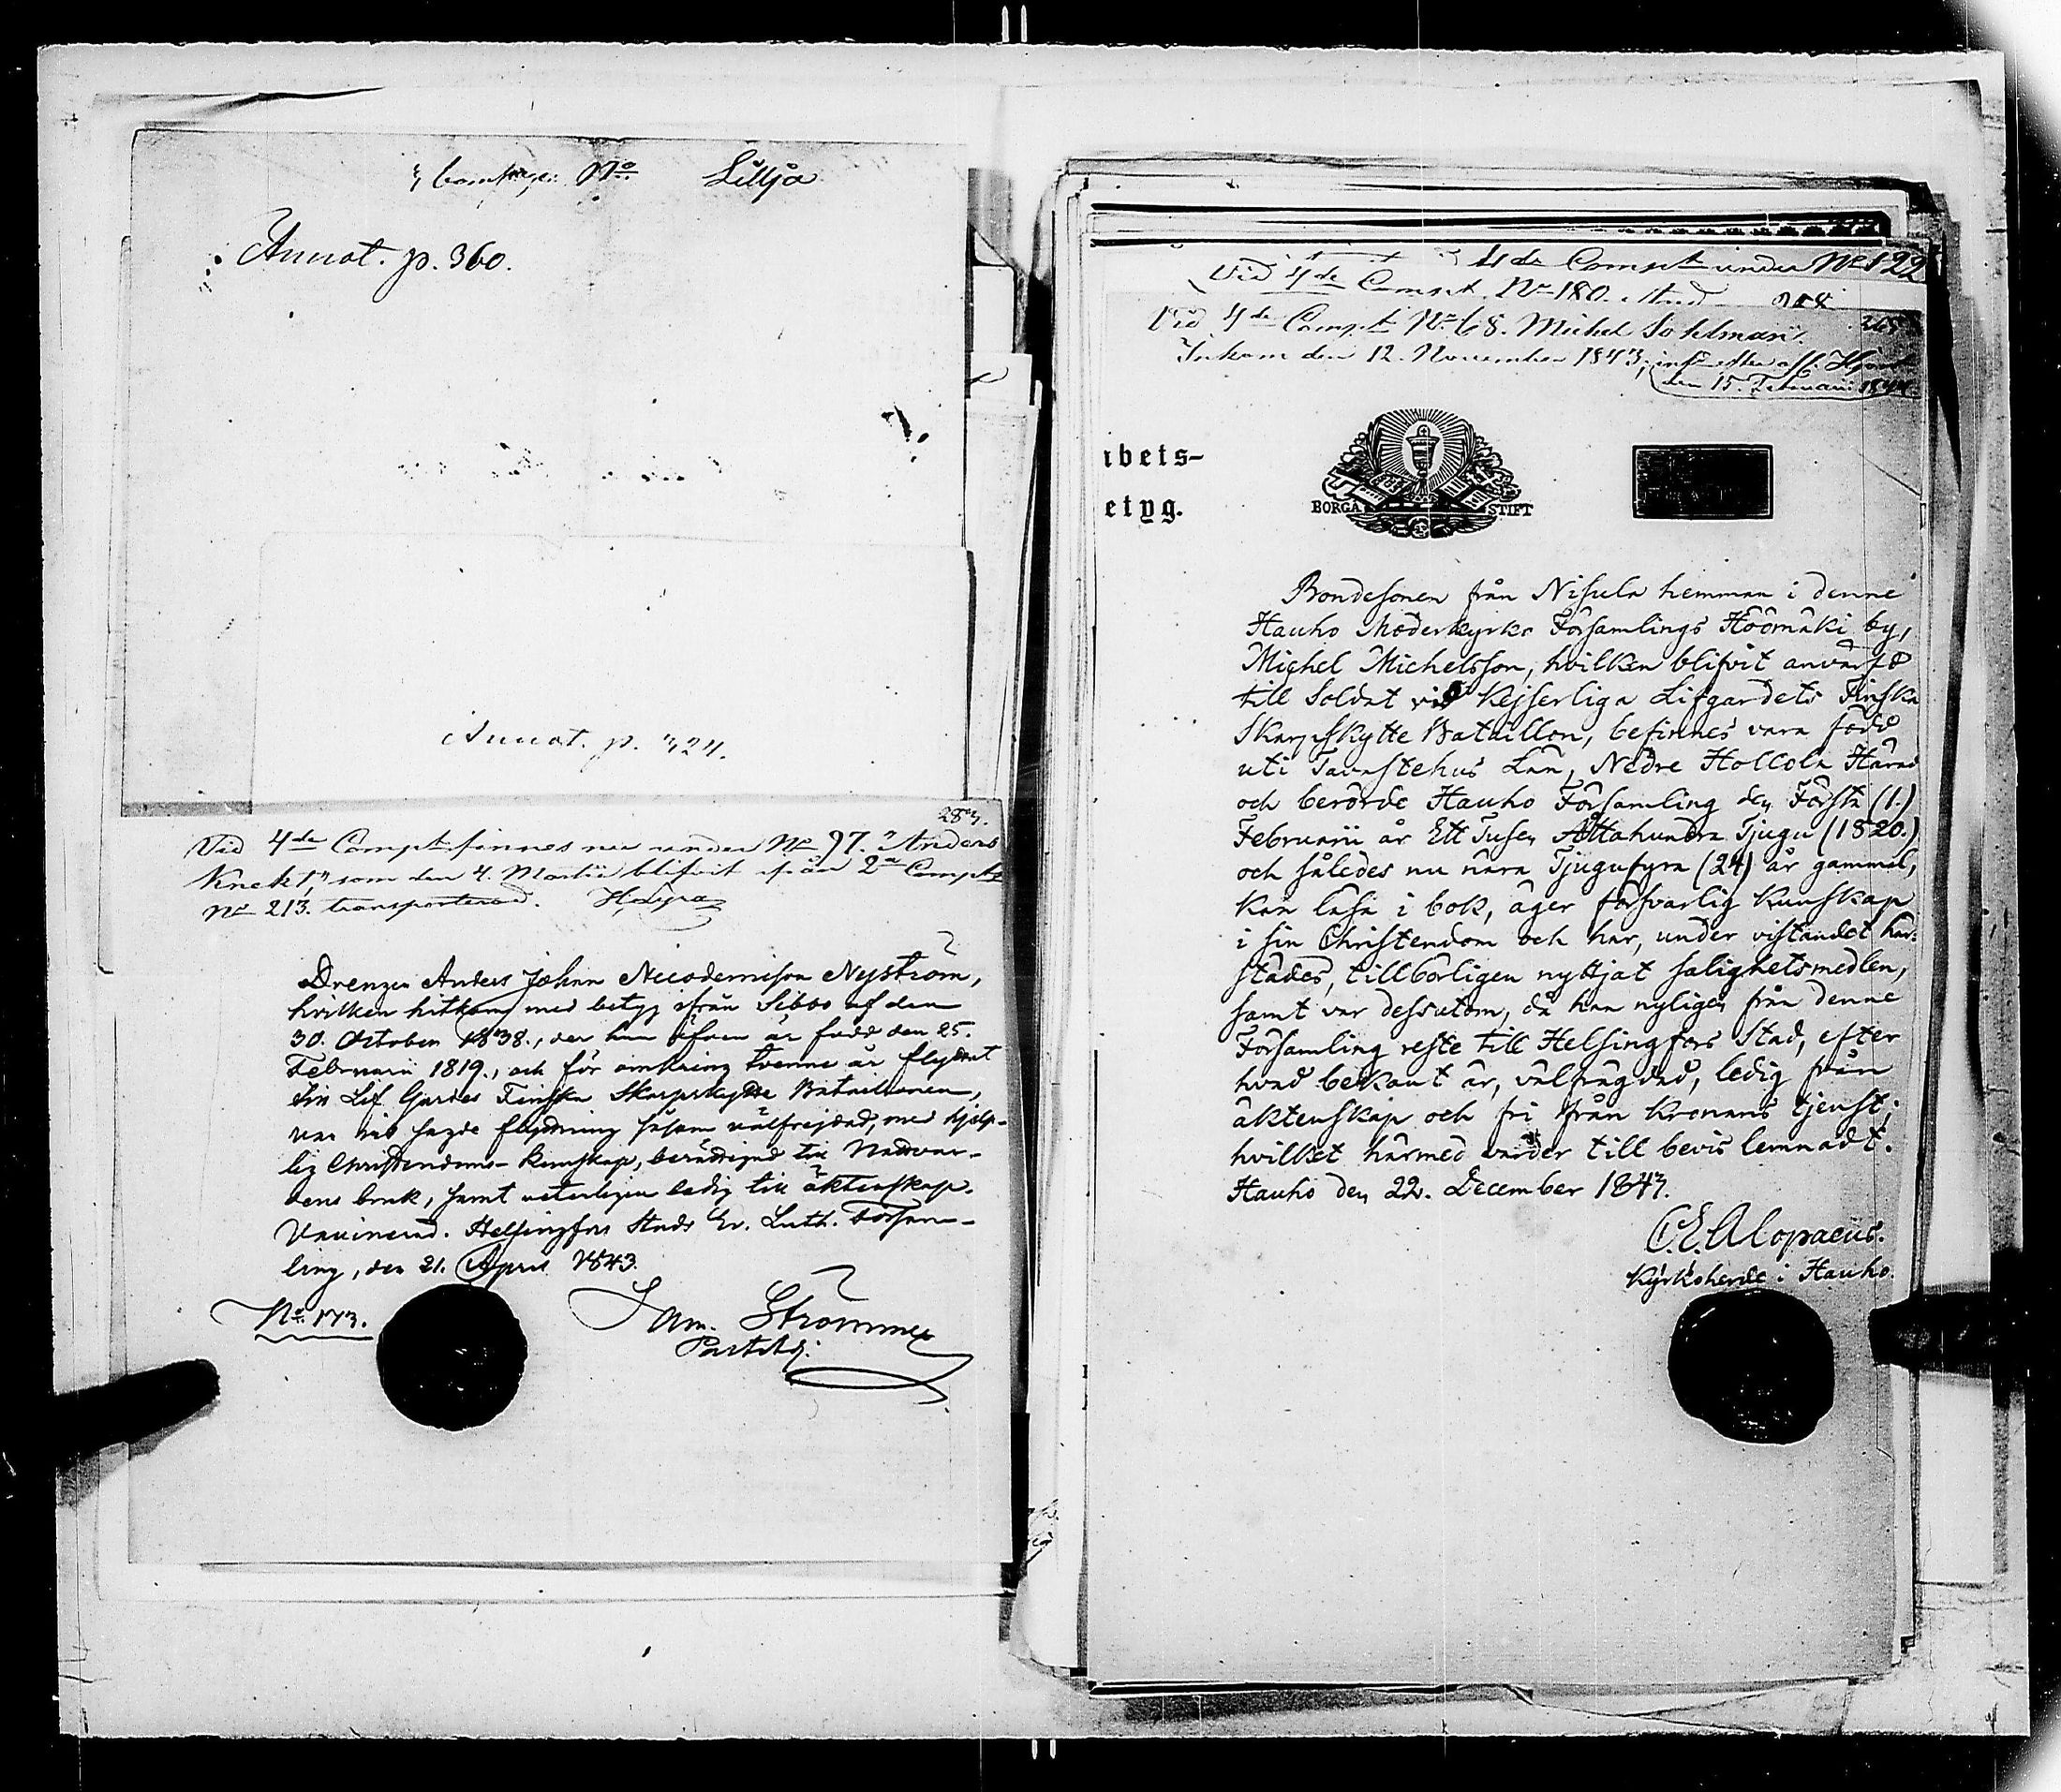 Compagn: No Lillja
Annot. p. 360.
Annot. p. 324.
283.
Vid 4de Compt finnes nu under No 97. Anders
Knekt, som den 4. Martii blifvit ifrån 2a Compts
No 213. transporterad.
Drengen Anders Johan Nicodemison Nyström,
hvilken hitkom med betyg ifrån Sibbo af den
30. October 1838., der han äfven är född den 25.
Februarii 1819., och för omkring tvenne år flyttat
till Lif Gardes Finska Skarpskytte Bataillonen,
var vid sagde flyttning såsom välfrejdad, med hjelp-
lig Christendoms-kunskap, berättigad till Nattvar-
dens bruk, samt veterligen ledig till äktenskap.
Vaccinerad. Helsingfors Stads Ev. Luth. Försam-
ling, den 21. April 1843.
No 173.
Sam. Strömmer
4de Compt under No 122
Vid 4de Compt. No 180.
Vid 4de Compt No 68. Michel Sohlman.
Inkom den 12. November 1843;
den 15. Februarii 1844.
ibets-
etyg.
BORGÅ STIFT
Bondesonen från Nisula hemman i denne
Hauho Moderkyrko Församlings Höömäki by,
Michel Michelsson, hvilken blifvit anvärfd
till Soldat vid Kejserliga Lifgardets Finska
Skarpskytte Bataillon, befinnes vara född
uti Tavastehus Län, Nedre Hollola Härad
och berörde Hauho Församling den Första (1.)
Februarii år Ett Tusen Åttahundra Tjugu (1820.)
och således nu nära Tjugufyra (24) år gammal,
kan läsa i bok, äger försvarlig kunskap
i sin Christendom och har, under vistandet här-
städes, tillbörligen nyttjat salighetsmedlen,
samt var dessutom, då han nyligen från denne
Församling reste till Helsingfors Stad, efter
hvad bekant är, välfrägdad, ledig från
äktenskap och fri från Kronans tjenst;
hvilket härmed varder till bevis lemnadt.
Hauho den 22. December 1843.
C. E. Alopaeus.
Kyrkoherde i Hauho.